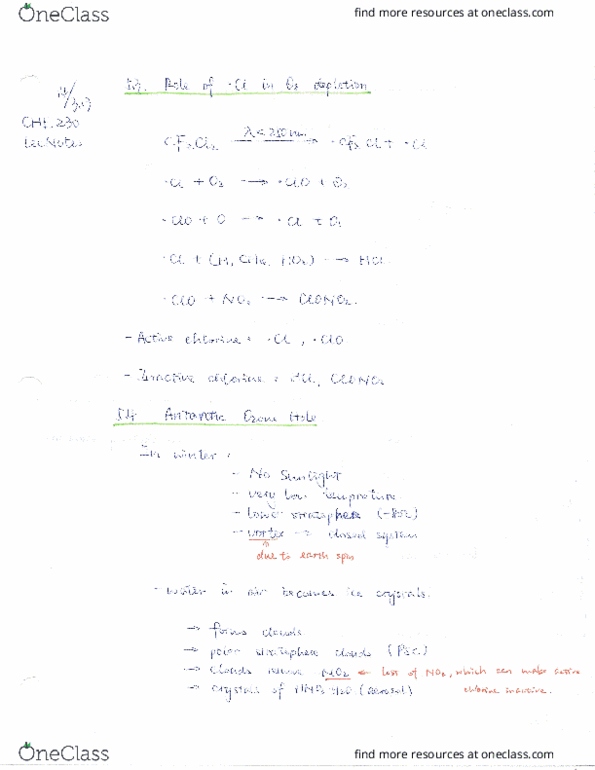 OneClass
find more resources at oneclass.com
5.3. Role of ·Cl in O3 depletion
CHE 230
Lec Notes
CF2Cl2 λ<250nm → ·CF2Cl + ·Cl
·Cl + O3 → ·ClO + O2
·ClO + O → ·Cl + O2
·Cl + (H, CH4, HO2) → HCl
·ClO + NO2 → ClONO2.
- Active chlorine: ·Cl, ·ClO
- Inactive chlorine: HCl, ClONO2
5.4. Antarctic Ozone Hole
In winter:
- No Sunlight
- very low temperature
- lower stratosphere
- vortex → closed system
due to earth spin
- Water in air becomes ice crystals.
→ forms clouds
→ polar stratosphere clouds (PSC)
→ clouds remove NO2 ← loss of NO2, which can make active
→ crystals of (aerosol) chlorine inactive.
OneClass
find more resources at oneclass.com